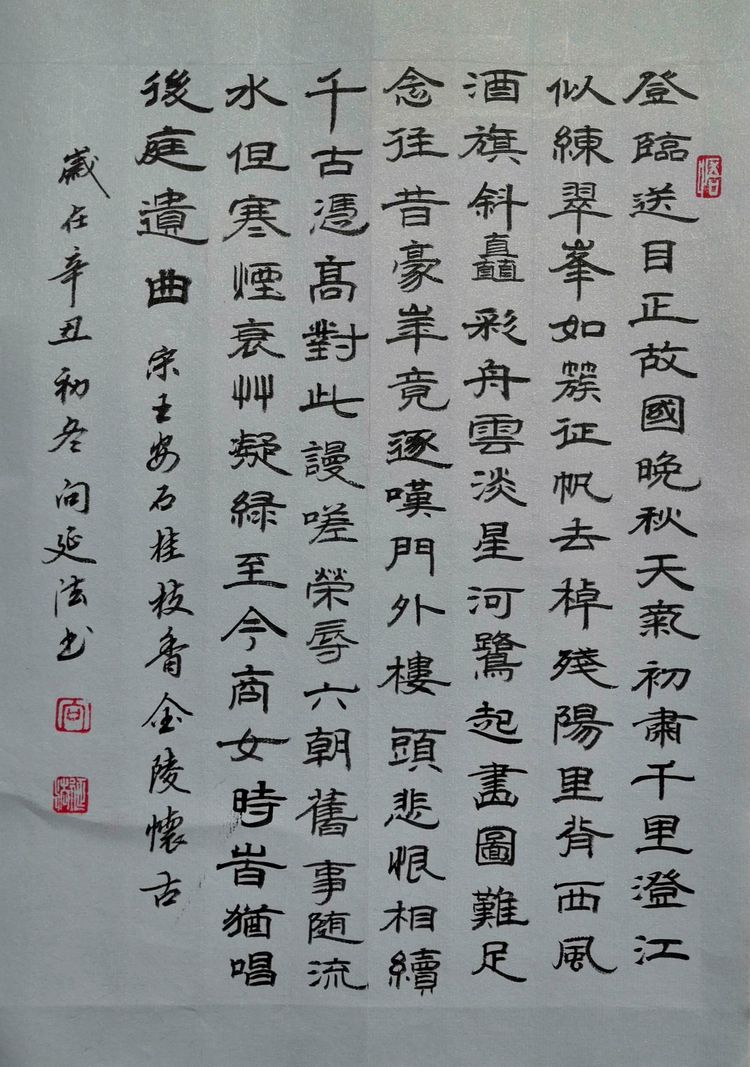 登臨送目正故國晚秋天氣初肅千里澄江
似練翠峯如簇征帆去棹殘陽里背西風
酒旗斜矗彩舟雲淡星河鷺起畫圖難足
念往昔豪華竟逐嘆門外樓頭悲恨相續
千古憑高對此謾嗟榮辱六朝舊事隨流
水但寒煙衰艸凝綠至今商女時時猶唱
後庭遺曲 宋王安石桂枝香金陵懷古
歲在辛丑初冬向延法书